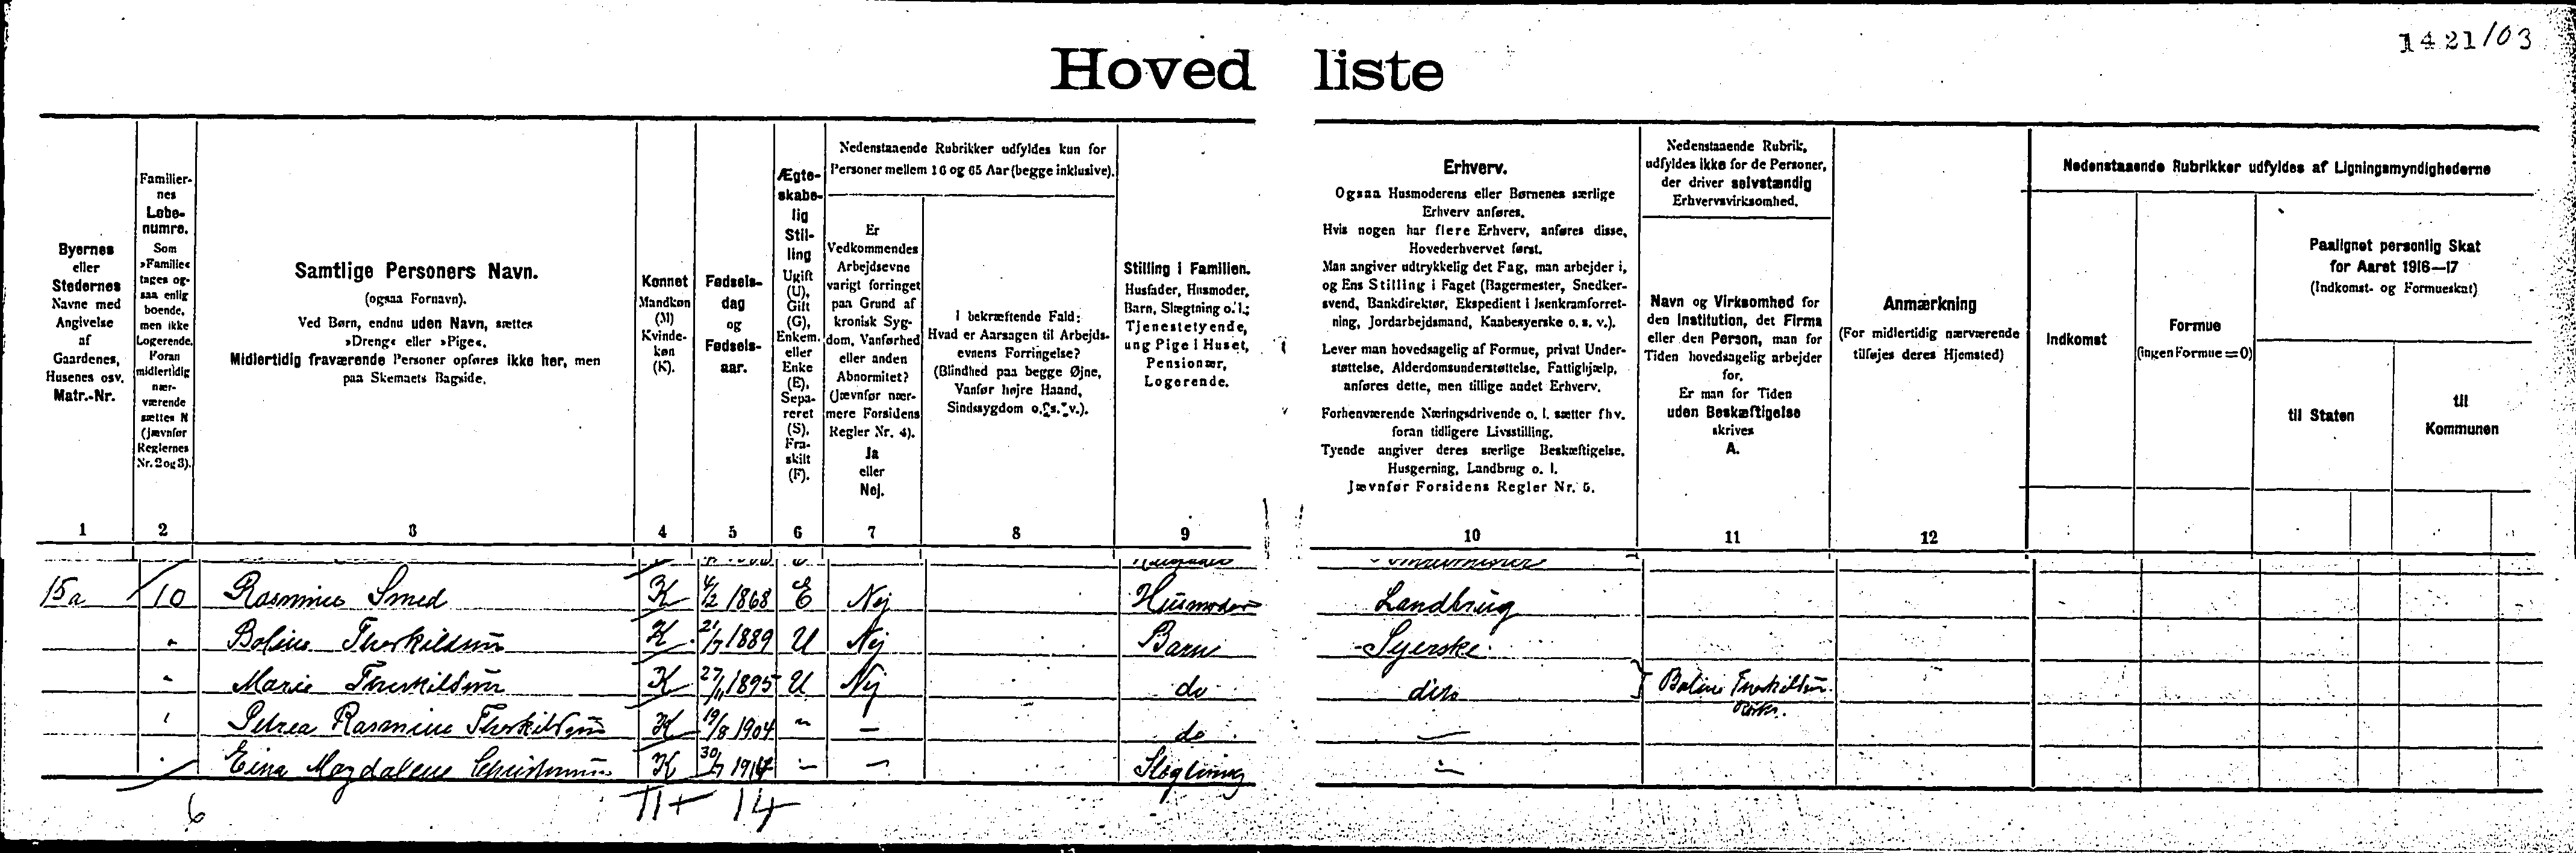 1421/03
Hoved liste
Byernes
eller
Stedernes
Navne med
Angivelse
af
Gaardenes,
Husenes osv.
Matr.-Nr.
Familier-
nes
Løbe-
numre.
Som
»Familie«
tages og-
saa enlig
boende,
men ikke
Logerende.
Foran
midlertidig
nær-
værende
sættes N
(jævnfør
Reglernes
Nr. 2 og 3).
Samtlige Personers Navn.
(ogsaa Fornavn).
Ved Børn, endnu uden Navn, sættes
»Dreng« eller »Pige«.
Midlertidig fraværende Personer opføres ikke her, men
paa Skemaets Bagside.
Kønnet
Mandkøn
(M)
Kvinde-
køn
(K).
Fødsels-
dag
og
Fødsels-
aar.
Ægte-
skabe-
lig
Stil-
ling
Ugift
(U),
Gift
(G),
Enkem.
eller
Enke
(E),
Sepa-
reret
(S),
Fra-
skilt
(F).
Nedenstaaende Rubrikker udfyldes kun for
Personer mellem 16 og 65 Aar (begge inklusive).
Er
Vedkommendes
Arbejdsevne
varigt forringet
paa Grund af
kronisk Syg-
dom, Vanførhed
eller anden
Abnormitet?
(Jævnfør nær-
mere Forsidens
Regler Nr. 4).
Ja
eller
Nej.
I bekræftende Fald:
Hvad er Aarsagen til Arbejds-
evnens Forringelse?
(Blindhed paa begge Øjne,
Vanfør højre Haand,
Sindssygdom o. s. v.).
Stilling i Familien.
Husfader, Husmoder,
Barn, Slægtning o. l.;
Tjenestetyende,
ung Pige i Huset,
Pensionær,
Logerende.
Erhverv.
Ogsaa Husmoderens eller Børnenes særlige
Erhverv anføres.
Hvis nogen har flere Erhverv, anføres disse,
Hovederhvervet først.
Man angiver udtrykkelig det Fag, man arbejder i,
og Ens Stilling i Faget (Bagermester, Snedker-
svend, Bankdirektør, Ekspedient i Isenkramforret-
ning, Jordarbejdsmand, Kaabesyerske o. s. v.).
Lever man hovedsagelig af Formue, privat Under-
støttelse, Alderdomsunderstøttelse, Fattighjælp,
anføres dette, men tillige andet Erhverv.
Forhenværende Næringsdrivende o. l. sætter fhv.
foran tidligere Livsstilling.
Tyende angiver deres særlige Beskæftigelse,
Husgerning, Landbrug o. l.
Jævnfør Forsidens Regler Nr. 5.
Nedenstaaende Rubrik,
udfyldes ikke for de Personer,
der driver selvstændig
Erhvervsvirksomhed.
Navn og Virksomhed for
den Institution, det Firma
eller den Person, man for
Tiden hovedsagelig arbejder
for.
Er man for Tiden
uden Beskæftigelse
skrives
A.
Anmærkning
(For midlertidig nærværende
tilføjes deres Hjemsted)
Nedenstaaende Rubrikker udfyldes af Ligningsmyndighederne
Indkomst
Formue
(ingen Formue = 0)
Paalignet personlig Skat
for Aaret 1916—17
(Indkomst- og Formueskat)
til Staten
til
Kommunen
1 2 3 4 5 6 7 8 9 10 11 12
15a 10 Rasmine Smed K 4/2 1868 E Nej Husmoder Landbrug
" Boline Thorkildsen K 21/7 1889 U Nej Barn Syerske
" Marie Thorkildsen K 27/11 1895 U Nej do dito } Boline Thorkildsen
" Petrea Rasmine Thorkildsen K 19/8 1904 " — do —
" Eina Magdalene Christensen K 30/7 1914 — — Slegtning —
6 11+ 14